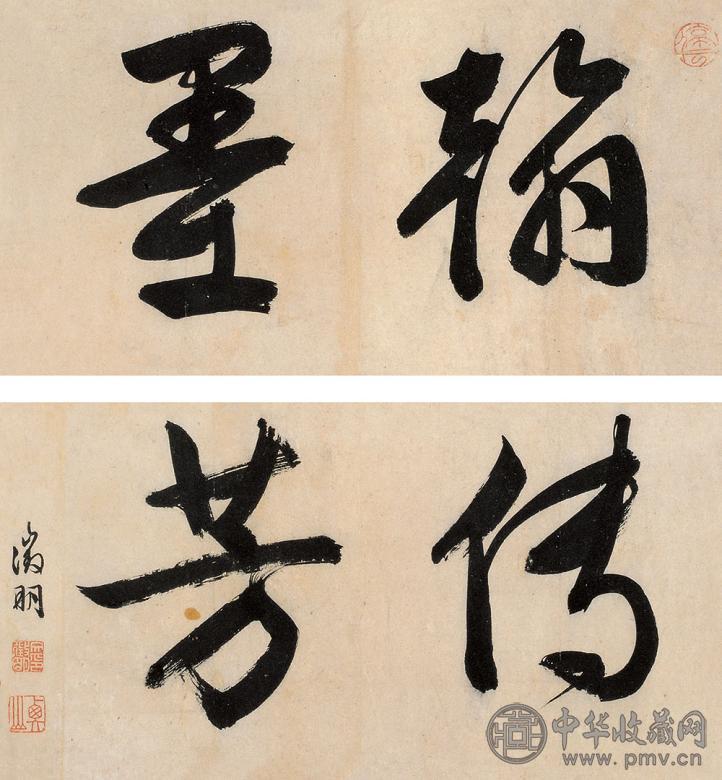 翰墨
傳芳
徵明
中华收藏网
www.pmv.cn